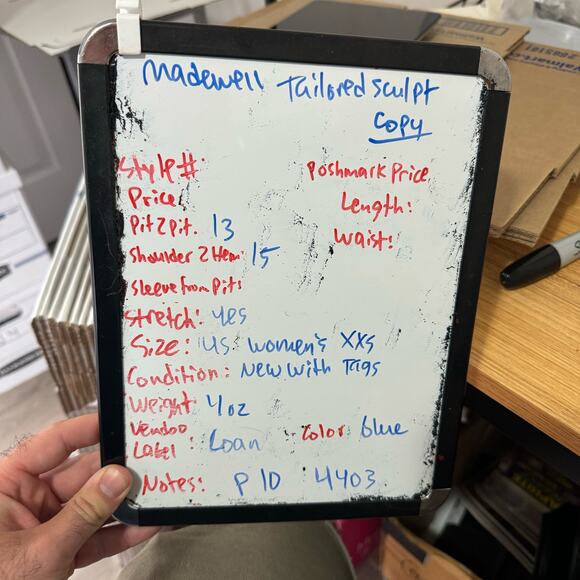 Madewell Tailored sculpt
Copy
Style#:
Poshmark Price
Price
Length:
Pit 2 Pit. 13
Waist:
Shoulder 2 Hem: 15
Sleeve from Pits
Stretch: yes
Size: US women's XXS
Condition: New with Tags
Weight 4oz
Vendoo
Label: Loan
Color: blue
Notes: P10 4403
Walmart